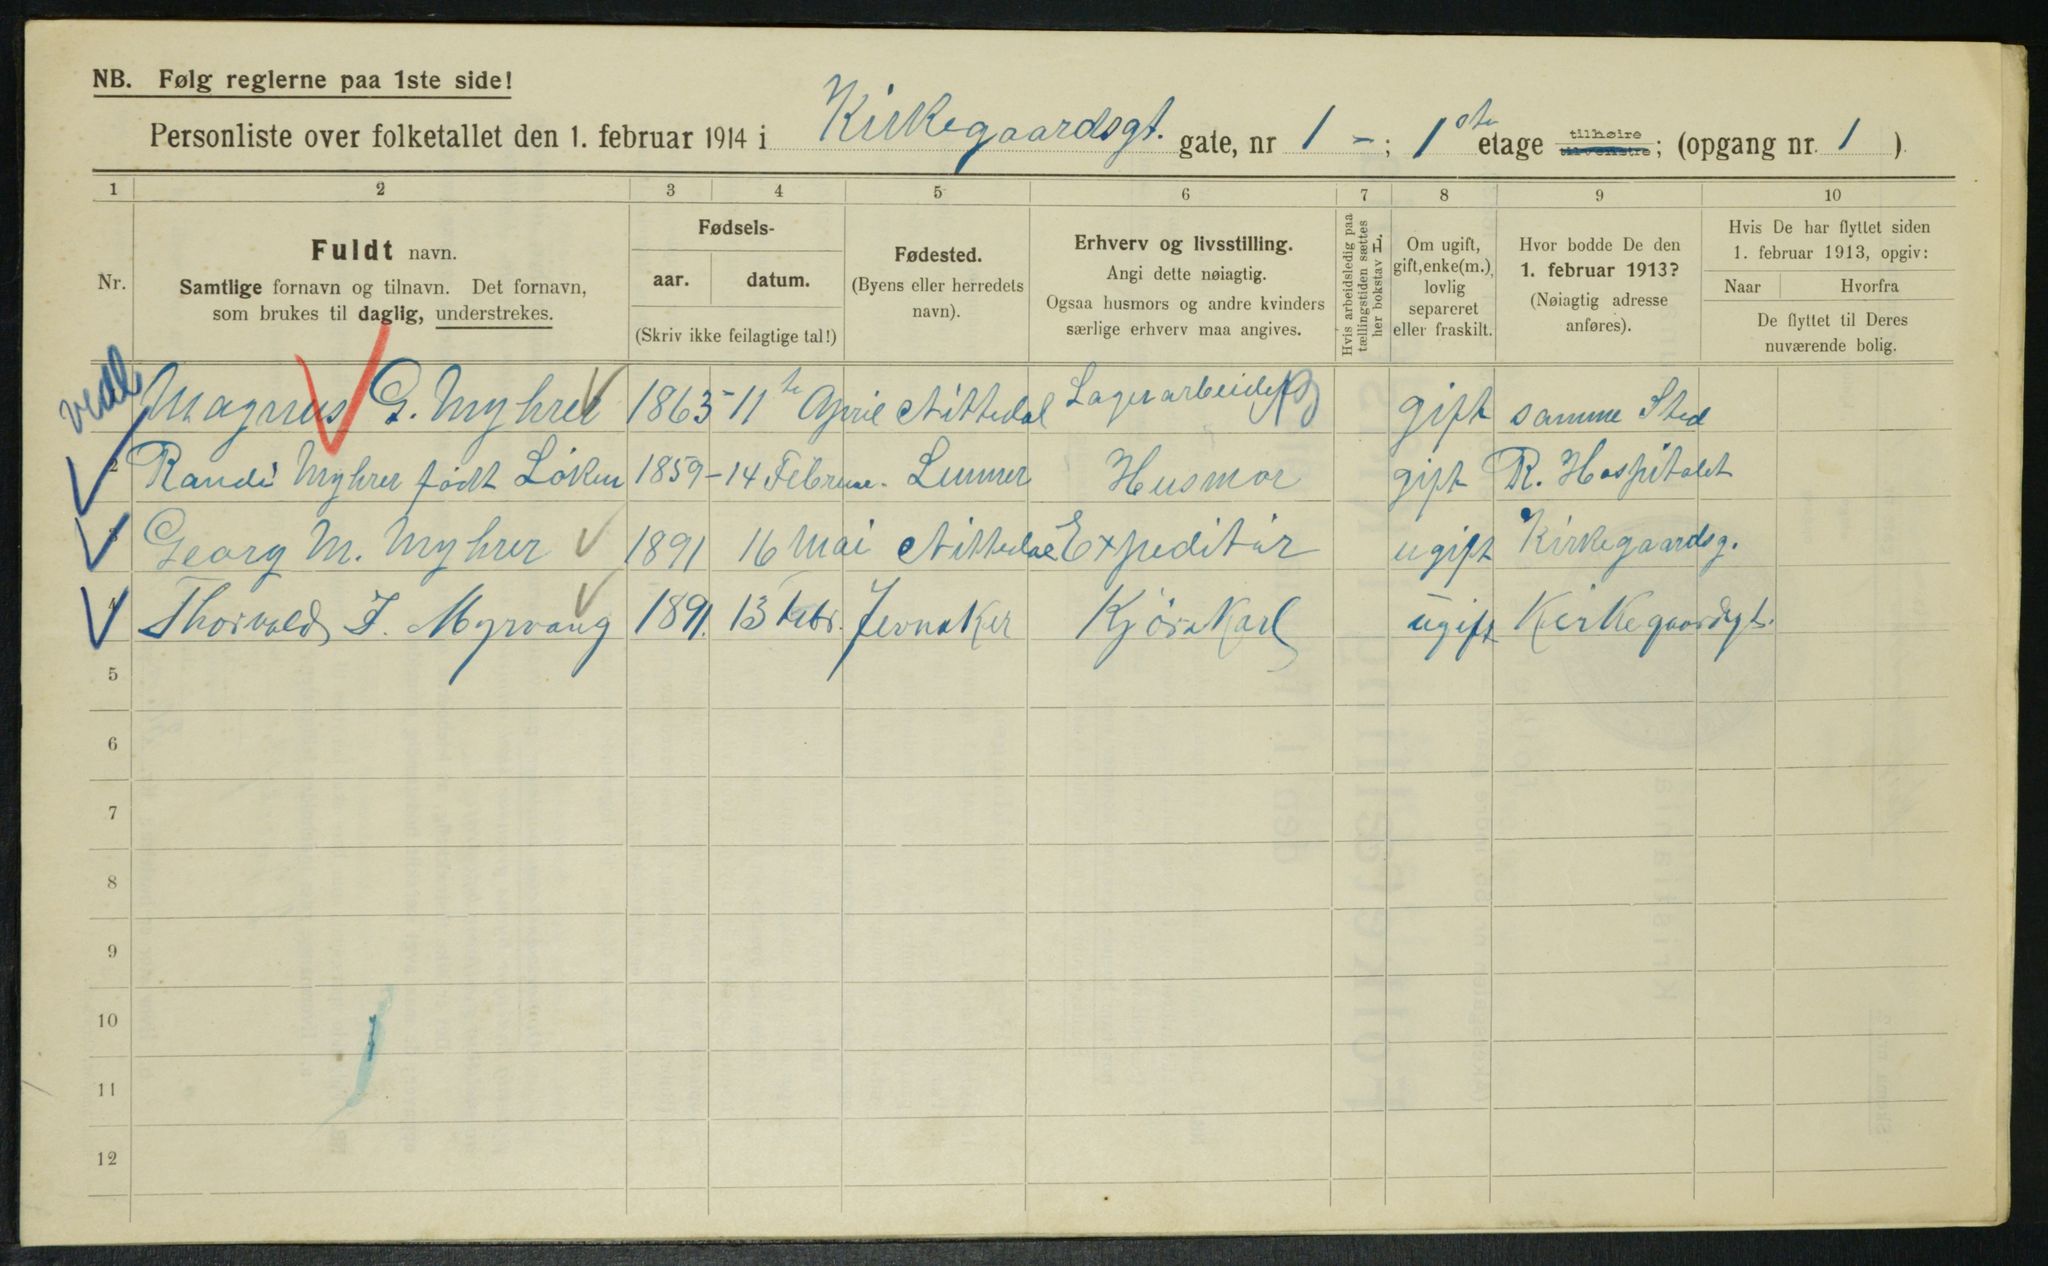 NB. Følg reglerne paa 1ste side!
Personliste over folketallet den 1. februar 1914 i Kirkegaardsgt. gate, nr 1 - ; 1ste etage tilhøire tilvenstre; (opgang nr. 1 ).
1 2 3 4 5 6 7 8 9 10
Nr.
Fuldt navn.
Samtlige fornavn og tilnavn. Det fornavn,
som brukes til daglig, understrekes.
Fødsels-
aar. datum.
(Skriv ikke feilagtige tal!)
Fødested.
(Byens eller herredets
navn).
Erhverv og livsstilling.
Angi dette nøiagtig.
Ogsaa husmors og andre kvinders
særlige erhverv maa angives.
Hvis arbeidsledig paa
tællingstiden sættes
her bokstav L.
Om ugift,
gift, enke(m.),
lovlig
separeret
eller fraskilt.
Hvor bodde De den
1. februar 1913?
(Nøiagtig adresse
anføres).
Hvis De har flyttet siden
1. februar 1913, opgiv:
Naar Hvorfra
De flyttet til Deres
nuværende bolig.
Magnus G. Myhrer 1863 - 11te April Nittedal Lagerarbeider gift samme Sted
2 Randi Myhrer født Løken 1859 - 14 Februar. Lunner Husmor gift R. Hospitalet
3 Georg M. Myhrer 1891 16 Mai Nittedal Expeditør ugift Kirkegaardsg.
4 Thorvald J. Myrvang 1891. 13 Febr. Jevnaker Kjørekarl ugift Kirkegaardsgt.
5
6
7
8
9
10
11
12